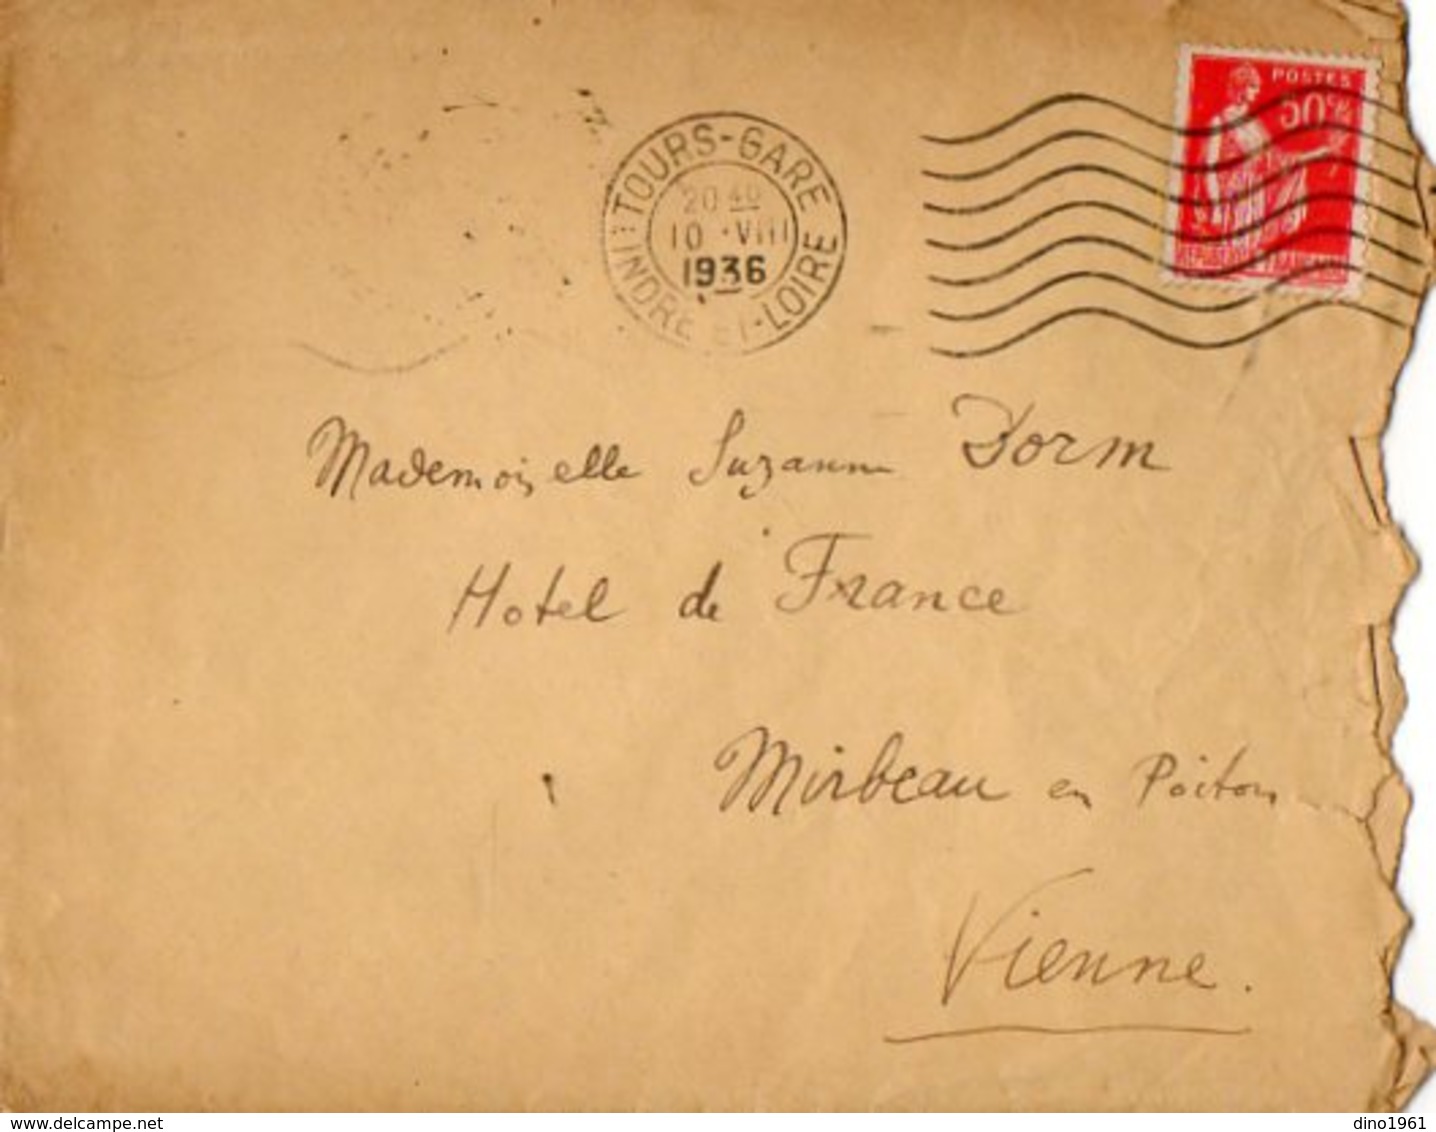 POSTES
50c
TOURS-GARE
20 40
10 ·VIII
1936
INDRE-ET-LOIRE
REPUBLIQUE FRANÇAISE
Mademoiselle Suzanne Dorm
Hotel de France
Mirbeau en Poitou
Vienne.
www.delcampe.net
dino1961